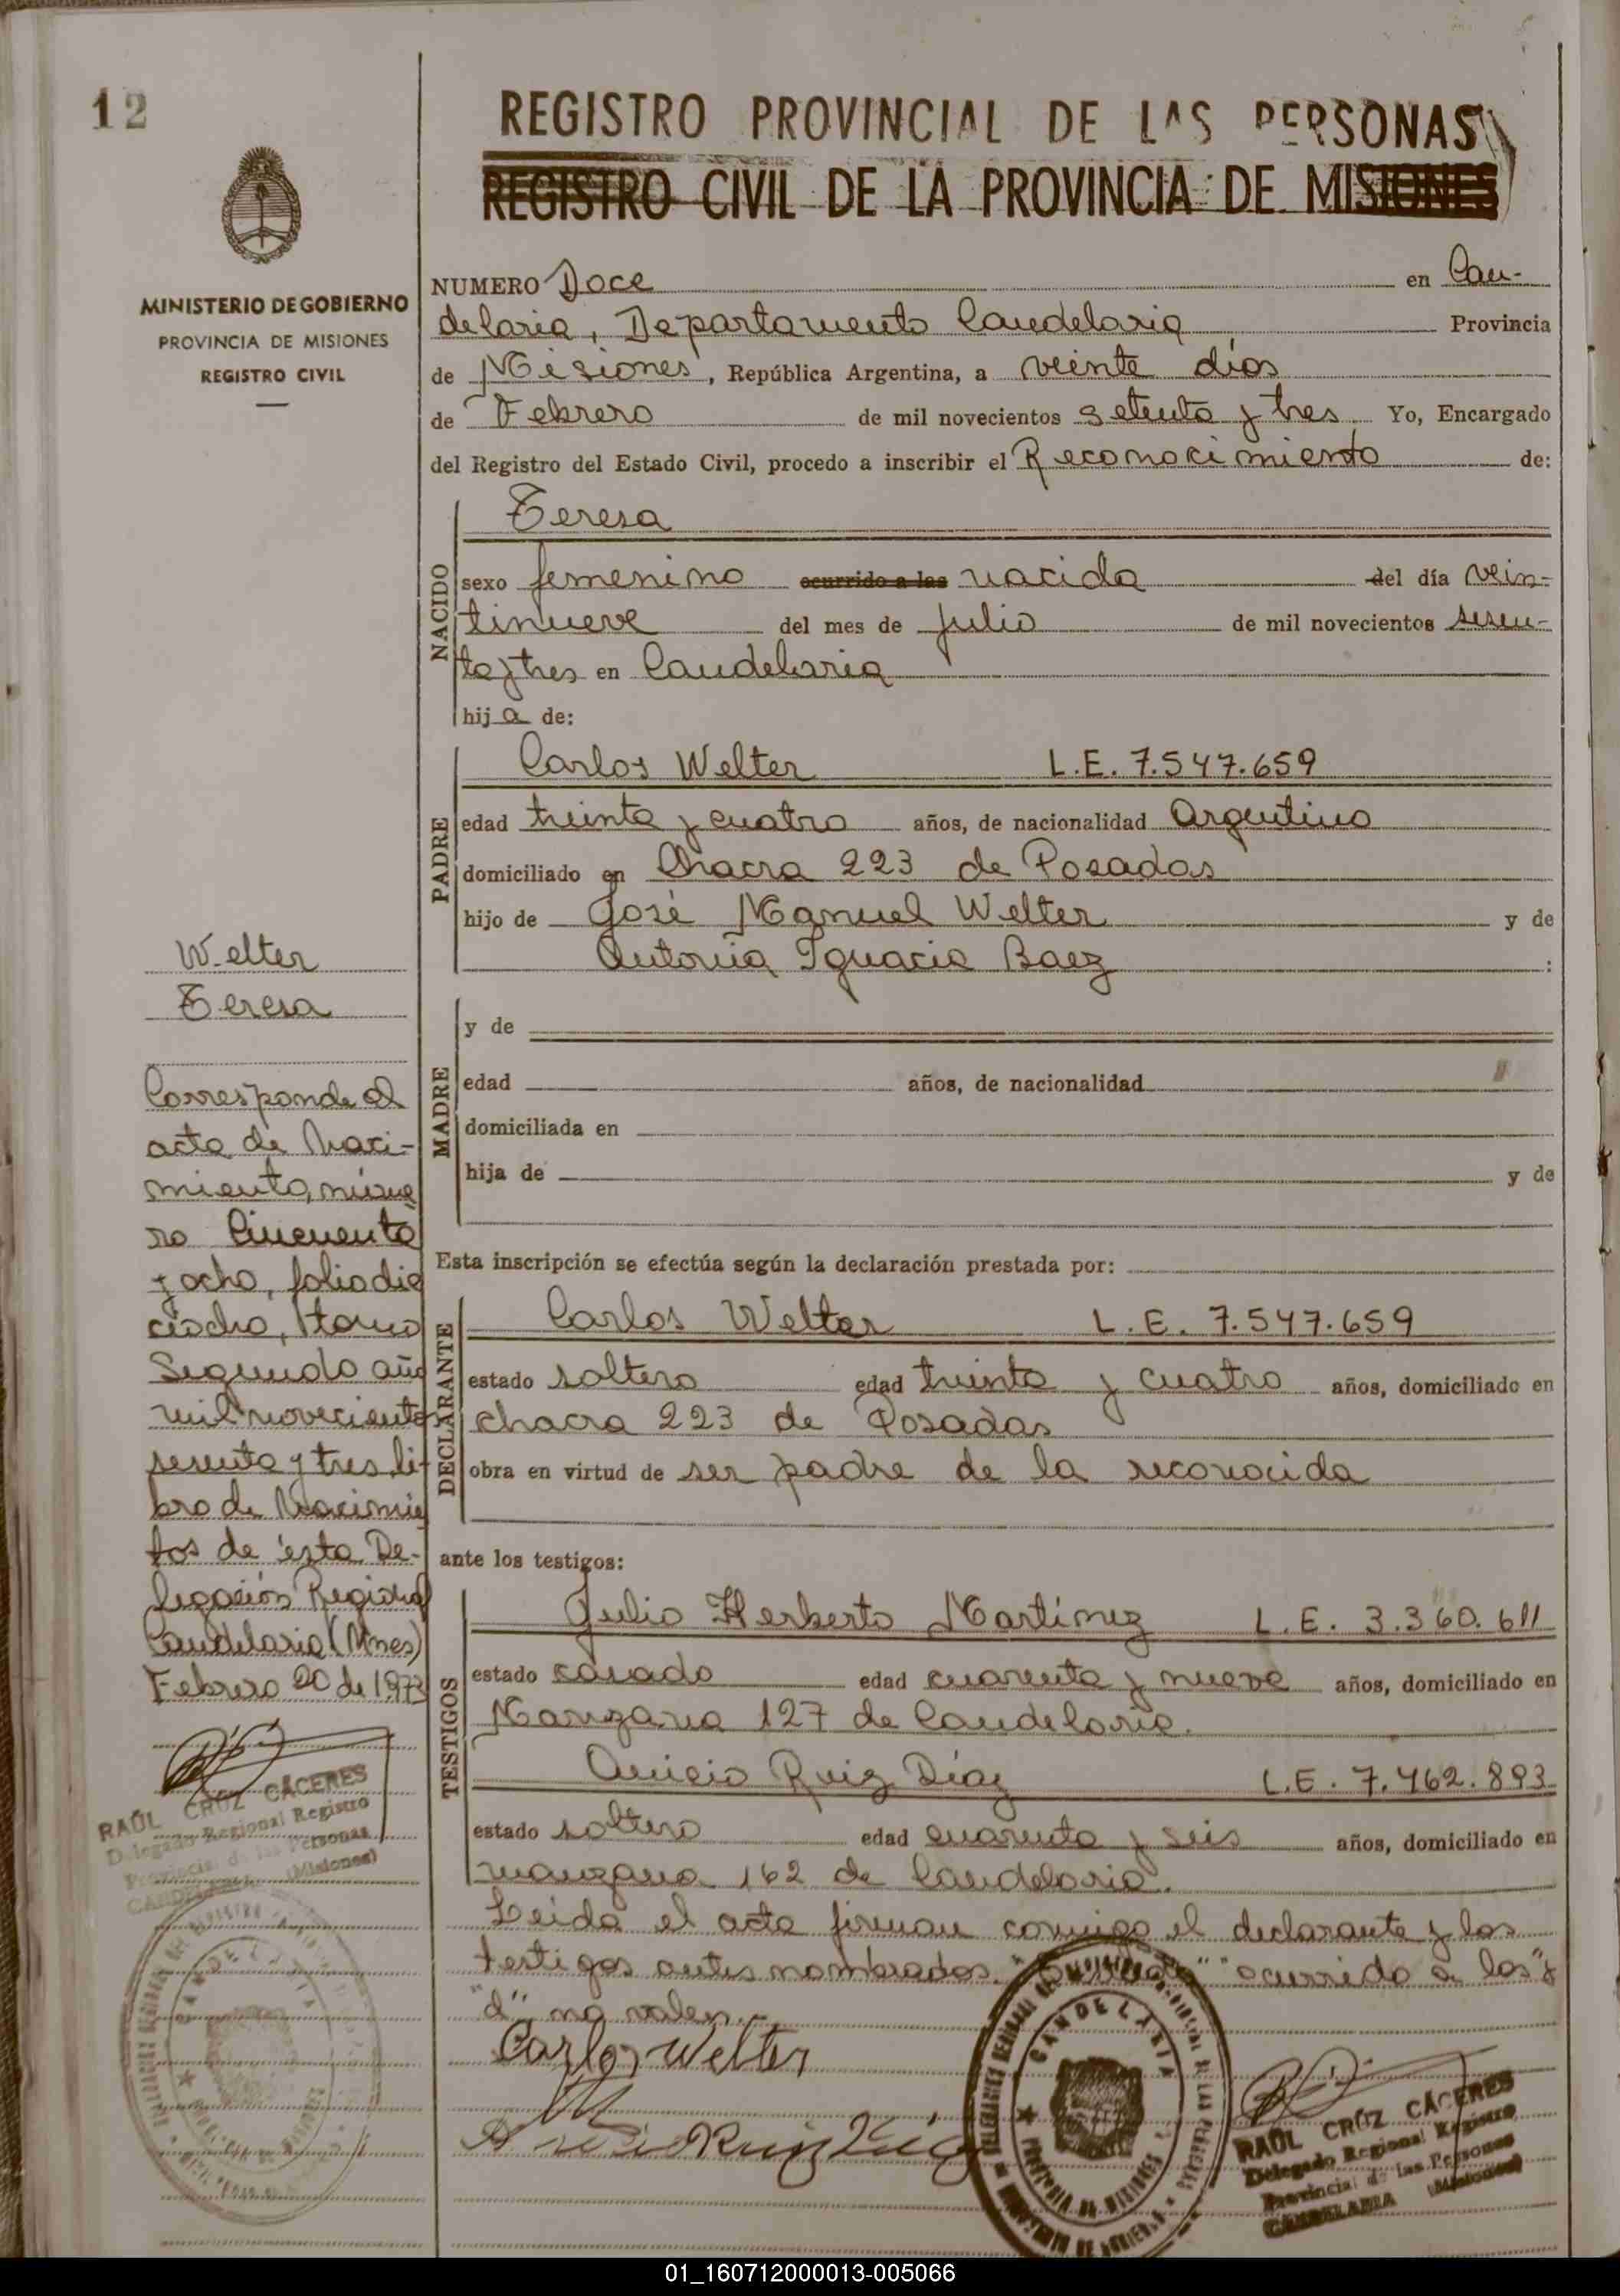 12
REGISTRO PROVINCIAL DE LAS PERSONAS
REGISTRO CIVIL DE LA PROVINCIA DE MISIONES
MINISTERIO DE GOBIERNO
PROVINCIA DE MISIONES
REGISTRO CIVIL
NUMERO Doce en Can-
delaria, Departamento Candelaria Provincia
de Misiones, República Argentina, a veinte días
de Febrero de mil novecientos setenta y tres Yo, Encargado
del Registro del Estado Civil, procedo a inscribir el Reconocimiento de:
NACIDO
Teresa
sexo femenino ocurrido a las nacida del día vein-
tinueve del mes de Julio de mil novecientos sesen-
ta y tres en Candelaria
hija de:
PADRE
Carlos Welter L.E. 7.547.659
edad treinta y cuatro años, de nacionalidad Argentino
domiciliado en Chacra 223 de Posadas
hijo de José Manuel Welter y de
Antonia Ignacia Baez :
MADRE
y de
edad años, de nacionalidad
domiciliada en
hija de y de
Esta inscripción se efectúa según la declaración prestada por:
DECLARANTE
Carlos Welter L.E. 7.547.659
estado soltero edad treinta y cuatro años, domiciliado en
chacra 223 de Posadas
obra en virtud de ser padre de la reconocida
ante los testigos:
TESTIGOS
Julio Herberto Martinez L.E. 3.360.611
estado casado edad cuarenta y nueve años, domiciliado en
Manzana 127 de Candelaria.
Anicio Ruiz Díaz L.E. 7.462.893
estado soltero edad cuarenta y seis años, domiciliado en
manzana 162 de Candelaria.
Leida el acta firman conmigo el declarante y los
testigos antes nombrados. "ocurrido a las" y
"d" no valen.
Carlos Welter
Ruiz Díaz
Welter
Teresa
Corresponde al
acta de Naci-
miento, núme
ro Cincuenta
y ocho, folio die
ciocho, tomo
Segundo año
mil novecientos
sesenta y tres, li-
bro de Nacimien
tos de ésta De-
legación Regional
Candelaria (Mnes)
Febrero 20 de 1973
RAÚL CRUZ CÁCERES
Delegado Regional Registro
Provincial de las Personas
CANDELARIA (Misiones)
CANDELARIA
CANDELARIA
PROVINCIA DE MISIONES
RAÚL CRUZ CÁCERES
Delegado Regional Registro
Provincial de las Personas
CANDELARIA (Misiones)
01_160712000013-005066